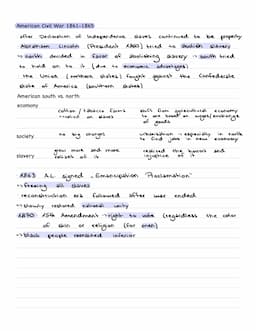 American Civil War 1861-1865
after Declaration of Independence slaves continued to be property
Abraham Lincoln (President 1860) tried to abolish slavery
→ north decided in favor of abolishing slavery → south tried
to hold on to it (due to economic advantages)
the Union (northern states) fought against the Confederate
State of America (southern states)
American south vs. north:
economy
cotton / tobacco farms shift from agricultural economy
→ relied on slaves to one based on wages/exchange
of goods
society no big changes urbanisation → especially in north
to find jobs in new economy
slavery grew more and more realized the horrors and
reliant of it injustice of it
1863 A.L. signed „Emancipation Proclamation"
→ freeing all slaves
reconstruction era followed after war ended
→ slowly restored national unity
1870 15th Amendment → right to vote (regardless the color
of skin or religion (for men))
→ black people remained inferior